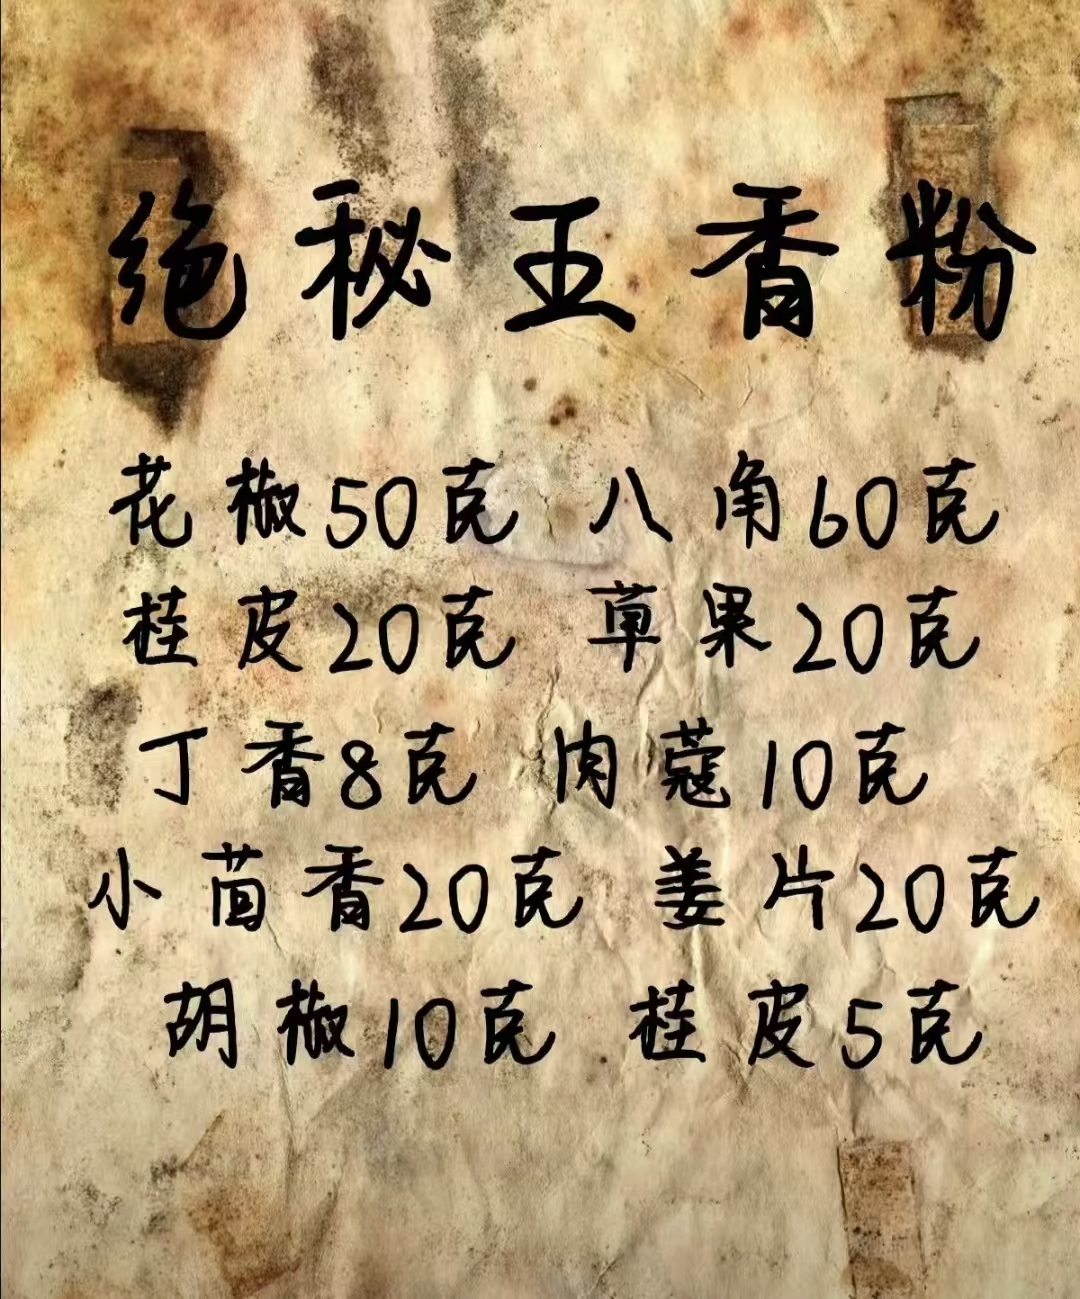 绝秘王香粉
花椒50克 八角60克
桂皮20克 草果20克
丁香8克 肉蔻10克
小茴香20克 姜片20克
胡椒10克 桂皮5克